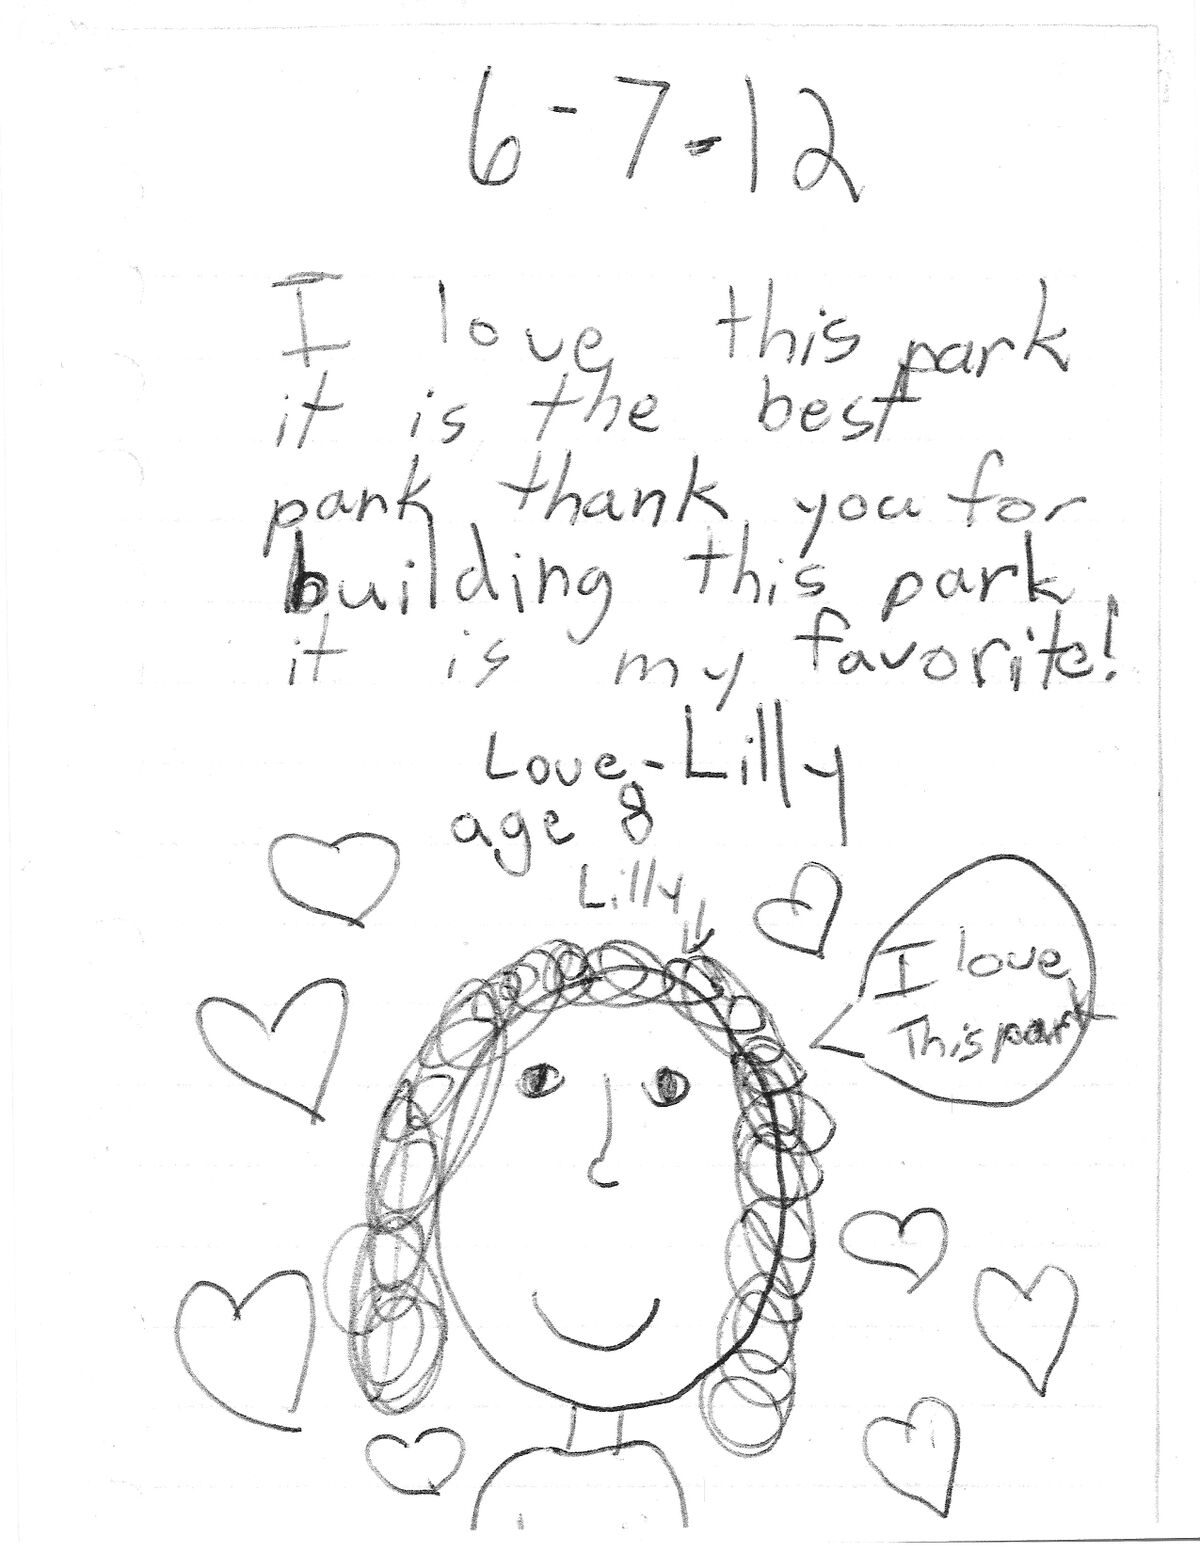 6-7-12
I love this park
it is the best
park thank you for
building this park
it is my favorite!
Love-Lilly
age 8
Lilly
I love
This park